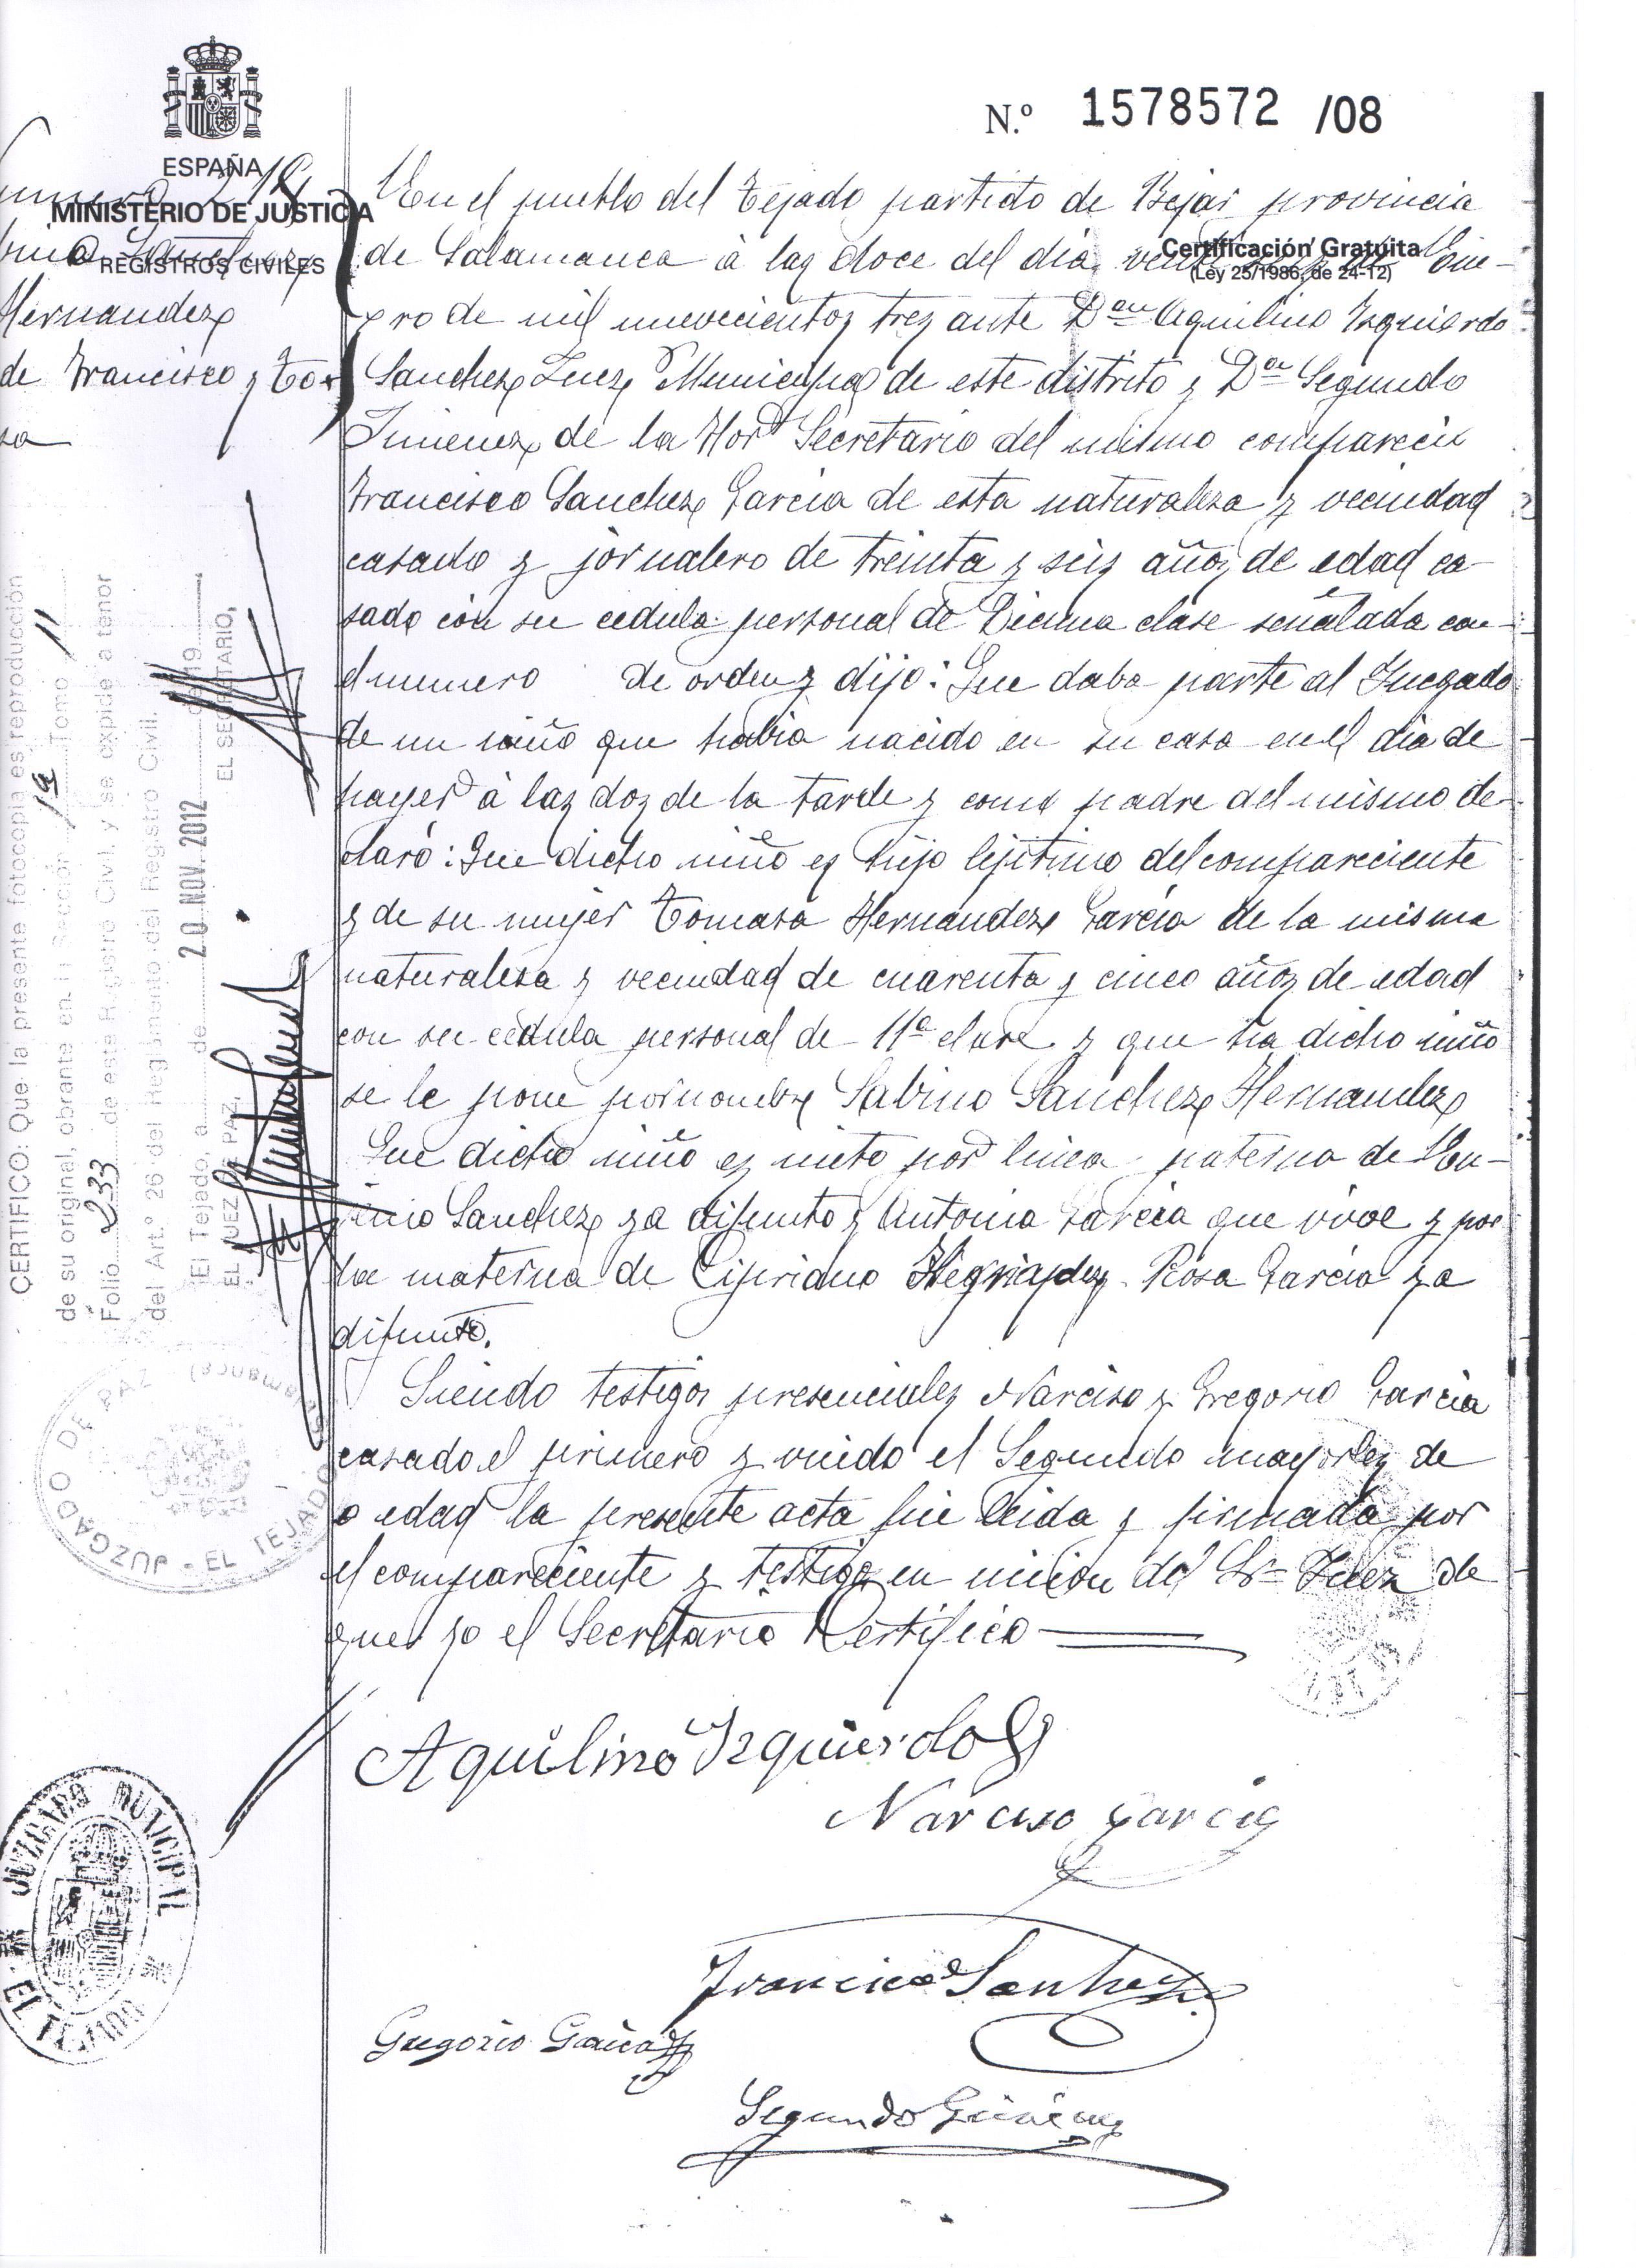 ESPAÑA
MINISTERIO DE JUSTICIA
REGISTROS CIVILES
N.º 1578572 /08
Certificación Gratuita
(Ley 25/1986, de 24-12)
Hernandez
de Francisco y To
sa
En el pueblo del Tejado partido de Bejar provincia
de Salamanca à las doce del dia Ene-
ro de mil nuevecientos tres ante Dⁿ Aquilino Izquierdo
Sanchez Juez Municipal de este distrito y Dⁿ Segundo
Jimenez de la Hor Secretario del mismo comparecio
Francisco Sanchez Garcia de esta naturaleza y vecindad
casado y jornalero de treinta y seis años de edad ca-
sado con su cedula personal de Decima clase señalada con
el numero de orden y dijo: Que daba parte al Juzgado
de un niño que habia nacido en su casa en el dia de
hayer à las dos de la tarde y como padre del mismo de-
claró: Que dicho niño es hijo lejitimo del compareciente
y de su mujer Tomasa Hernandez Garcia de la misma
naturalesa y vecindad de cuarenta y cinco años de edad
con su cedula personal de 11ª clase y que ha dicho niño
se le pone por nombre Sabino Sanchez Hernandez
Que dicho niño es nieto por linea paterna de
Sanchez ya difunto y Antonia Garcia que vive y por
la materna de Cipriano Hernandez Rosa Garcia ya
difunto.
Siendo testigos presenciales Narciso y Gregorio Garcia
casado el primero y viudo el Segundo mayores de
edad la presente acta fue leida y firmada por
el compareciente y testigo en union del Sr Juez de
que yo el Secretario Certifico
Aquilino Izquierdo
Narciso Garcia
Francisco Sanchez
Gregorio Garcia
Segundo Gimenez
CERTIFICO: Que la presente fotocopia es reproducción
de su original, obrante en la Sección 1ª Tomo 11
Folio 233 de este Registro Civil y se expide a tenor
del Art.º 26 del Reglamento del Registro Civil.
El Tejado, a de 20 NOV. 2012 de 19
EL JUEZ DE PAZ, EL SECRETARIO,
JUZGADO DE PAZ - EL TEJADO
JUZGADO MUNICIPAL
EL TEJADO